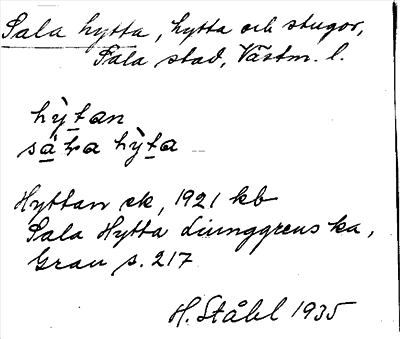 Sala hytta, hytta och stugor,
Sala stad, Västm. l.
hỳtan
sàḷa hỳta
Hyttan ek, 1921 kb
Sala Hytta Ljunggrens ka,
Grau s. 217
H. Ståhl 1935